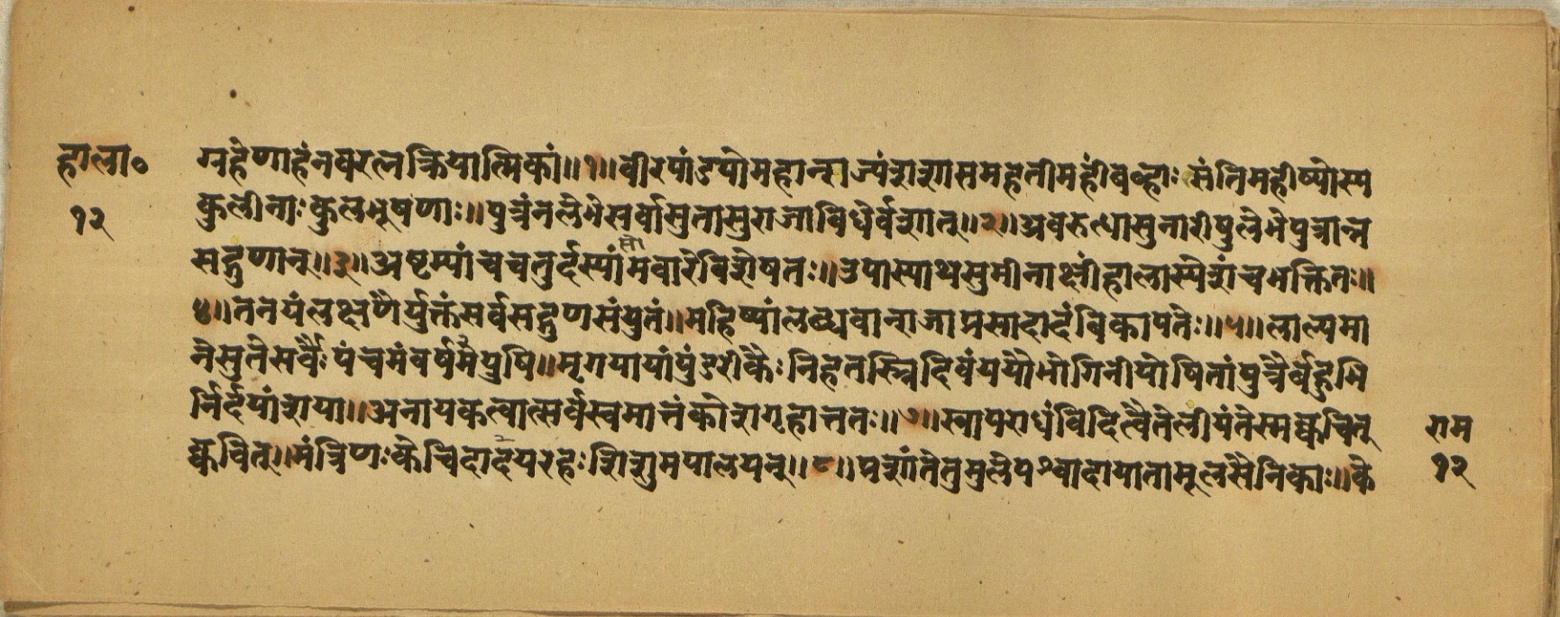 हाला॰ ग्रहेणाहंनवरत्नक्रियात्मिकां॥१॥वीरपांड्योमहान्राज्यंशशासमहतीमहीं बव्हाः संतिमहीष्योस्य
१२ कुलीनाः कुलभूषणाः॥पुत्रंनलेभेसर्वासुतासुराजाविधेर्वशात्॥२॥अवरुत्थासुनारीषुलेभेपुत्रान्न
सद्गुणान्॥३॥अष्टम्यांचचतुर्दस्यांसोमवारेविशेषतः॥उपास्याथसुमीनाक्षींहालास्येशंचभक्तितः॥
४॥तनयंलक्षणैर्युक्तंसर्वसद्गुणसंयुतं॥महिष्यांलब्धवान्राजाप्रसादादंबिकापतेः॥५॥लाल्यमा
नेसुतेसर्वैः पंचमंवर्षमैयुषि॥मृगयायांपुंडरीकैः निहतस्त्रिदिवंययौभोगिनीयोषितांपुत्रैर्बहुभि
र्निर्दयांशया॥अनायकत्वात्सर्वस्वमात्तंकोशगृहात्ततः॥७॥स्वापराधंविदित्वैतेलीयंतेस्मक्वचित् राम
क्वचित्॥मंत्रिणः केचिदादयरहः शिशुमपालयन्॥८॥प्रशांतेतुमुलेपश्चादायातामूलसैनिकाः॥के १२